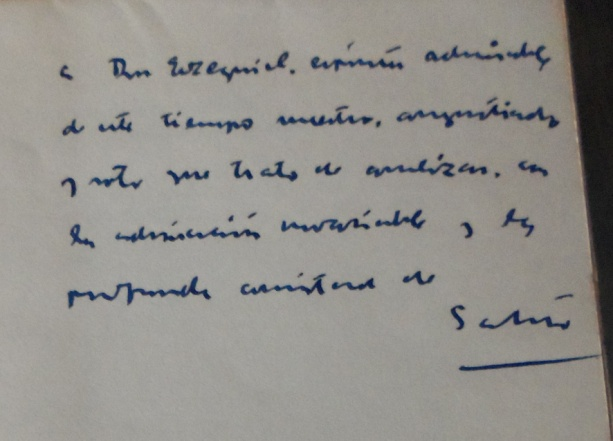 a Don Ezequiel, espíritu admirable
de este tiempo nuestro, angustiado
y roto que trato de analizar, con
la admiración invariable y la
profunda amistad de
Sabato